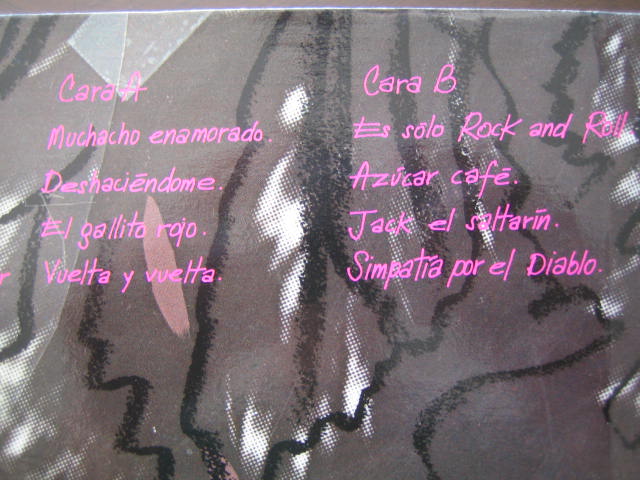 Cara A
Muchacho enamorado.
Deshaciéndome.
El gallito rojo.
Vuelta y vuelta.
Cara B
Es sólo Rock and Roll
Azúcar café.
Jack el saltarín.
Simpatía por el Diablo.